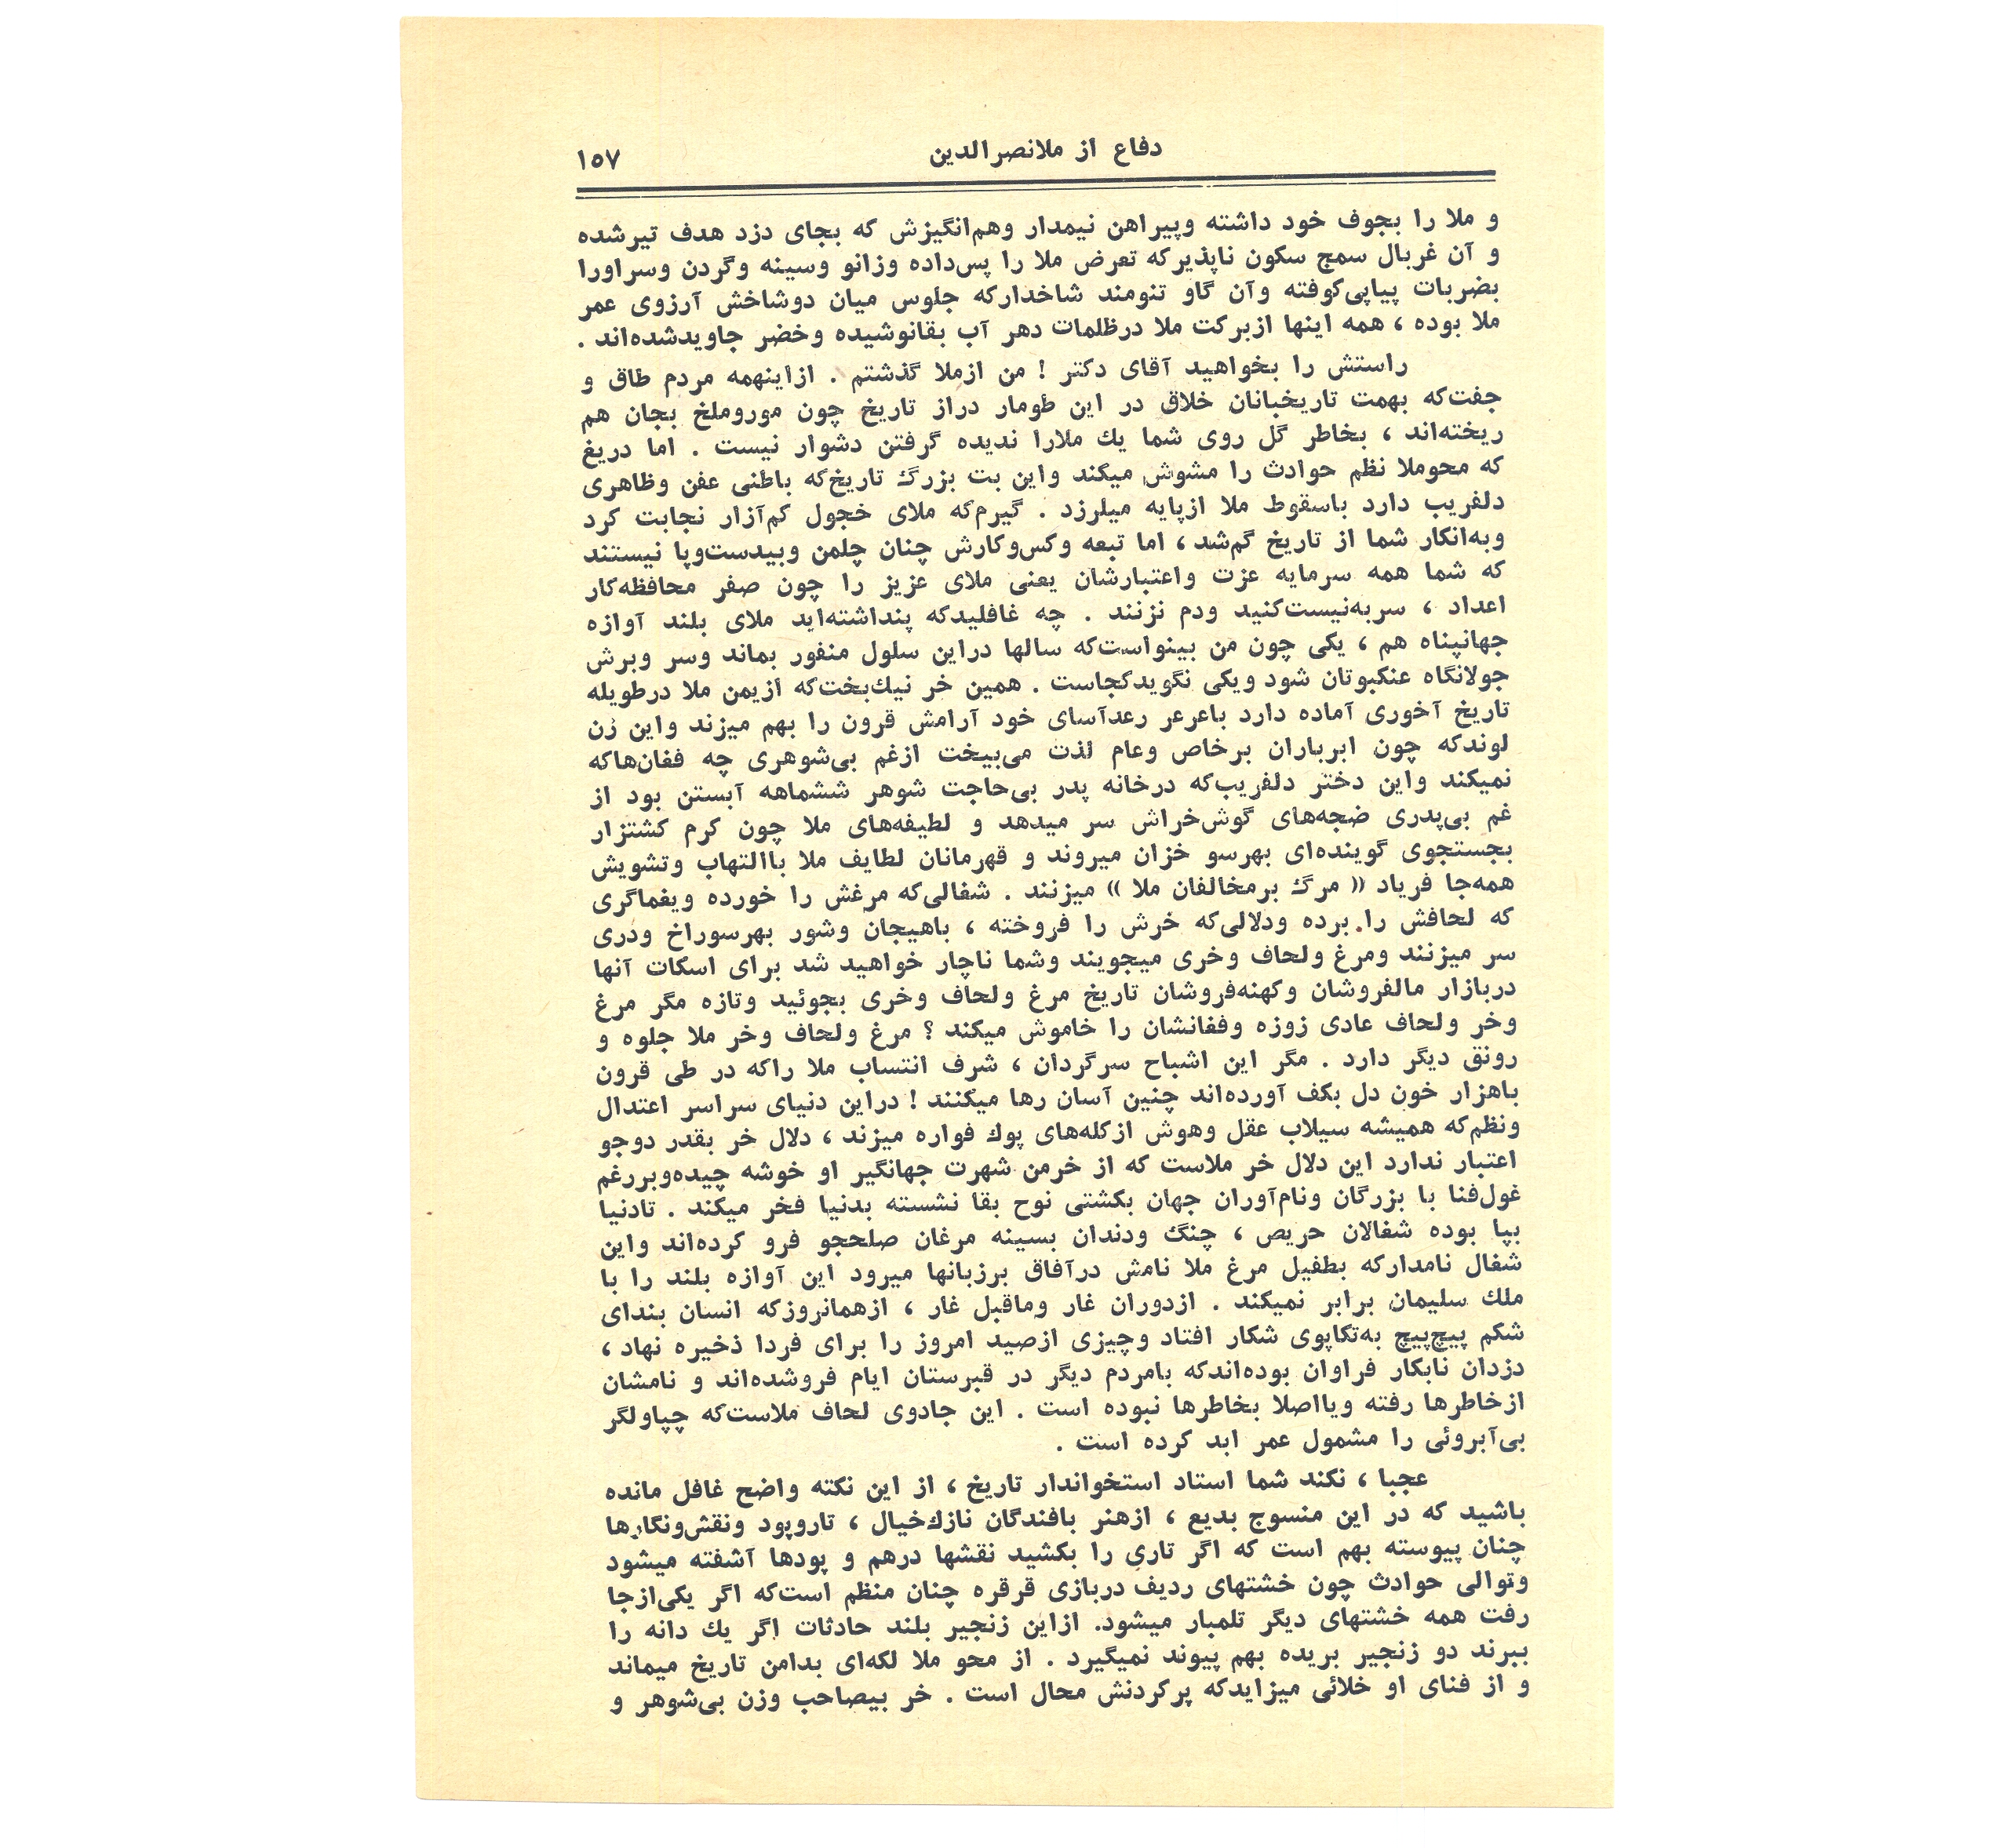 دفاع از ملانصرالدین
۱۵۷
و ملا را بجوف خود داشته وپیراهن نیمدار وهم‌انگیزش که بجای دزد هدف تیرشده
و آن غربال سمج سکون ناپذیرکه تعرض ملا را پس‌داده وزانو وسینه وگردن وسراورا
بضربات پیاپی‌کوفته وآن گاو تنومند شاخدارکه جلوس میان دوشاخش آرزوی عمر
ملا بوده ، همه اینها ازبرکت ملا درظلمات دهر آب بقانوشیده وخضر جاویدشده‌اند .
راستش را بخواهید آقای دکتر ! من ازملا گذشتم . ازاینهمه مردم طاق و
جفت‌که بهمت تاریخبانان خلاق در این طومار دراز تاریخ چون موروملخ بجان هم
ریخته‌اند ، بخاطر گل روی شما یك ملارا ندیده گرفتن دشوار نیست . اما دریغ
که محوملا نظم حوادث را مشوش میکند واین بت بزرگ تاریخ‌که باطنی عفن وظاهری
دلفریب دارد باسقوط ملا ازپایه میلرزد . گیرم‌که ملای خجول کم‌آزار نجابت کرد
وبه‌انکار شما از تاریخ گم‌شد ، اما تبعه وکس‌وکارش چنان چلمن وبیدست‌وپا نیستند
که شما همه سرمایه عزت واعتبارشان یعنی ملای عزیز را چون صفر محافظه‌کار
اعداد ، سربه‌نیست‌کنید ودم نزنند . چه غافلیدکه پنداشته‌اید ملای بلند آوازه
جهانپناه هم ، یکی چون من بینواست‌که سالها دراین سلول منفور بماند وسر وبرش
جولانگاه عنکبوتان شود ویکی نگویدکجاست . همین خر نیك‌بخت‌که ازیمن ملا درطویله
تاریخ آخوری آماده دارد باعرعر رعدآسای خود آرامش قرون را بهم میزند واین زن
لوندکه چون ابرباران برخاص وعام لذت می‌بیخت ازغم بی‌شوهری چه فغان‌هاکه
نمیکند واین دختر دلفریب‌که درخانه پدر بی‌حاجت شوهر ششماهه آبستن بود از
غم بی‌پدری ضجه‌های گوش‌خراش سر میدهد و لطیفه‌های ملا چون کرم کشتزار
بجستجوی گوینده‌ای بهرسو خزان میروند و قهرمانان لطایف ملا باالتهاب وتشویش
همه‌جا فریاد « مرگ برمخالفان ملا » میزنند . شغالی‌که مرغش را خورده ویغماگری
که لحافش را برده ودلالی‌که خرش را فروخته ، باهیجان وشور بهرسوراخ ودری
سر میزنند ومرغ ولحاف وخری میجویند وشما ناچار خواهید شد برای اسکات آنها
دربازار مالفروشان وکهنه‌فروشان تاریخ مرغ ولحاف وخری بجوئید وتازه مگر مرغ
وخر ولحاف عادی زوزه وفغانشان را خاموش میکند ؟ مرغ ولحاف وخر ملا جلوه و
رونق دیگر دارد . مگر این اشباح سرگردان ، شرف انتساب ملا راکه در طی قرون
باهزار خون دل بکف آورده‌اند چنین آسان رها میکنند ! دراین دنیای سراسر اعتدال
ونظم‌که همیشه سیلاب عقل وهوش ازکله‌های پوك فواره میزند ، دلال خر بقدر دوجو
اعتبار ندارد این دلال خر ملاست که از خرمن شهرت جهانگیر او خوشه چیده‌وبررغم
غول‌فنا با بزرگان ونام‌آوران جهان بکشتی نوح بقا نشسته بدنیا فخر میکند . تادنیا
بپا بوده شغالان حریص ، چنگ ودندان بسینه مرغان صلحجو فرو کرده‌اند واین
شغال نامدارکه بطفیل مرغ ملا نامش درآفاق برزبانها میرود این آوازه بلند را با
ملك سلیمان برابر نمیکند . ازدوران غار وماقبل غار ، ازهمانروزکه انسان بندای
شکم پیچ‌پیچ به‌تکاپوی شکار افتاد وچیزی ازصید امروز را برای فردا ذخیره نهاد ،
دزدان نابکار فراوان بوده‌اندکه بامردم دیگر در قبرستان ایام فروشده‌اند و نامشان
ازخاطرها رفته ویااصلا بخاطرها نبوده است . این جادوی لحاف ملاست‌که چپاولگر
بی‌آبروئی را مشمول عمر ابد کرده است .
عجبا ، نکند شما استاد استخواندار تاریخ ، از این نکته واضح غافل مانده
باشید که در این منسوج بدیع ، ازهنر بافندگان نازك‌خیال ، تاروپود ونقش‌ونگارها
چنان پیوسته بهم است که اگر تاری را بکشید نقشها درهم و پودها آشفته میشود
وتوالی حوادث چون خشتهای ردیف دربازی قرقره چنان منظم است‌که اگر یکی‌ازجا
رفت همه خشتهای دیگر تلمبار میشود. ازاین زنجیر بلند حادثات اگر یك دانه را
ببرند دو زنجیر بریده بهم پیوند نمیگیرد . از محو ملا لکه‌ای بدامن تاریخ میماند
و از فنای او خلائی میزایدکه پرکردنش محال است . خر بیصاحب وزن بی‌شوهر و